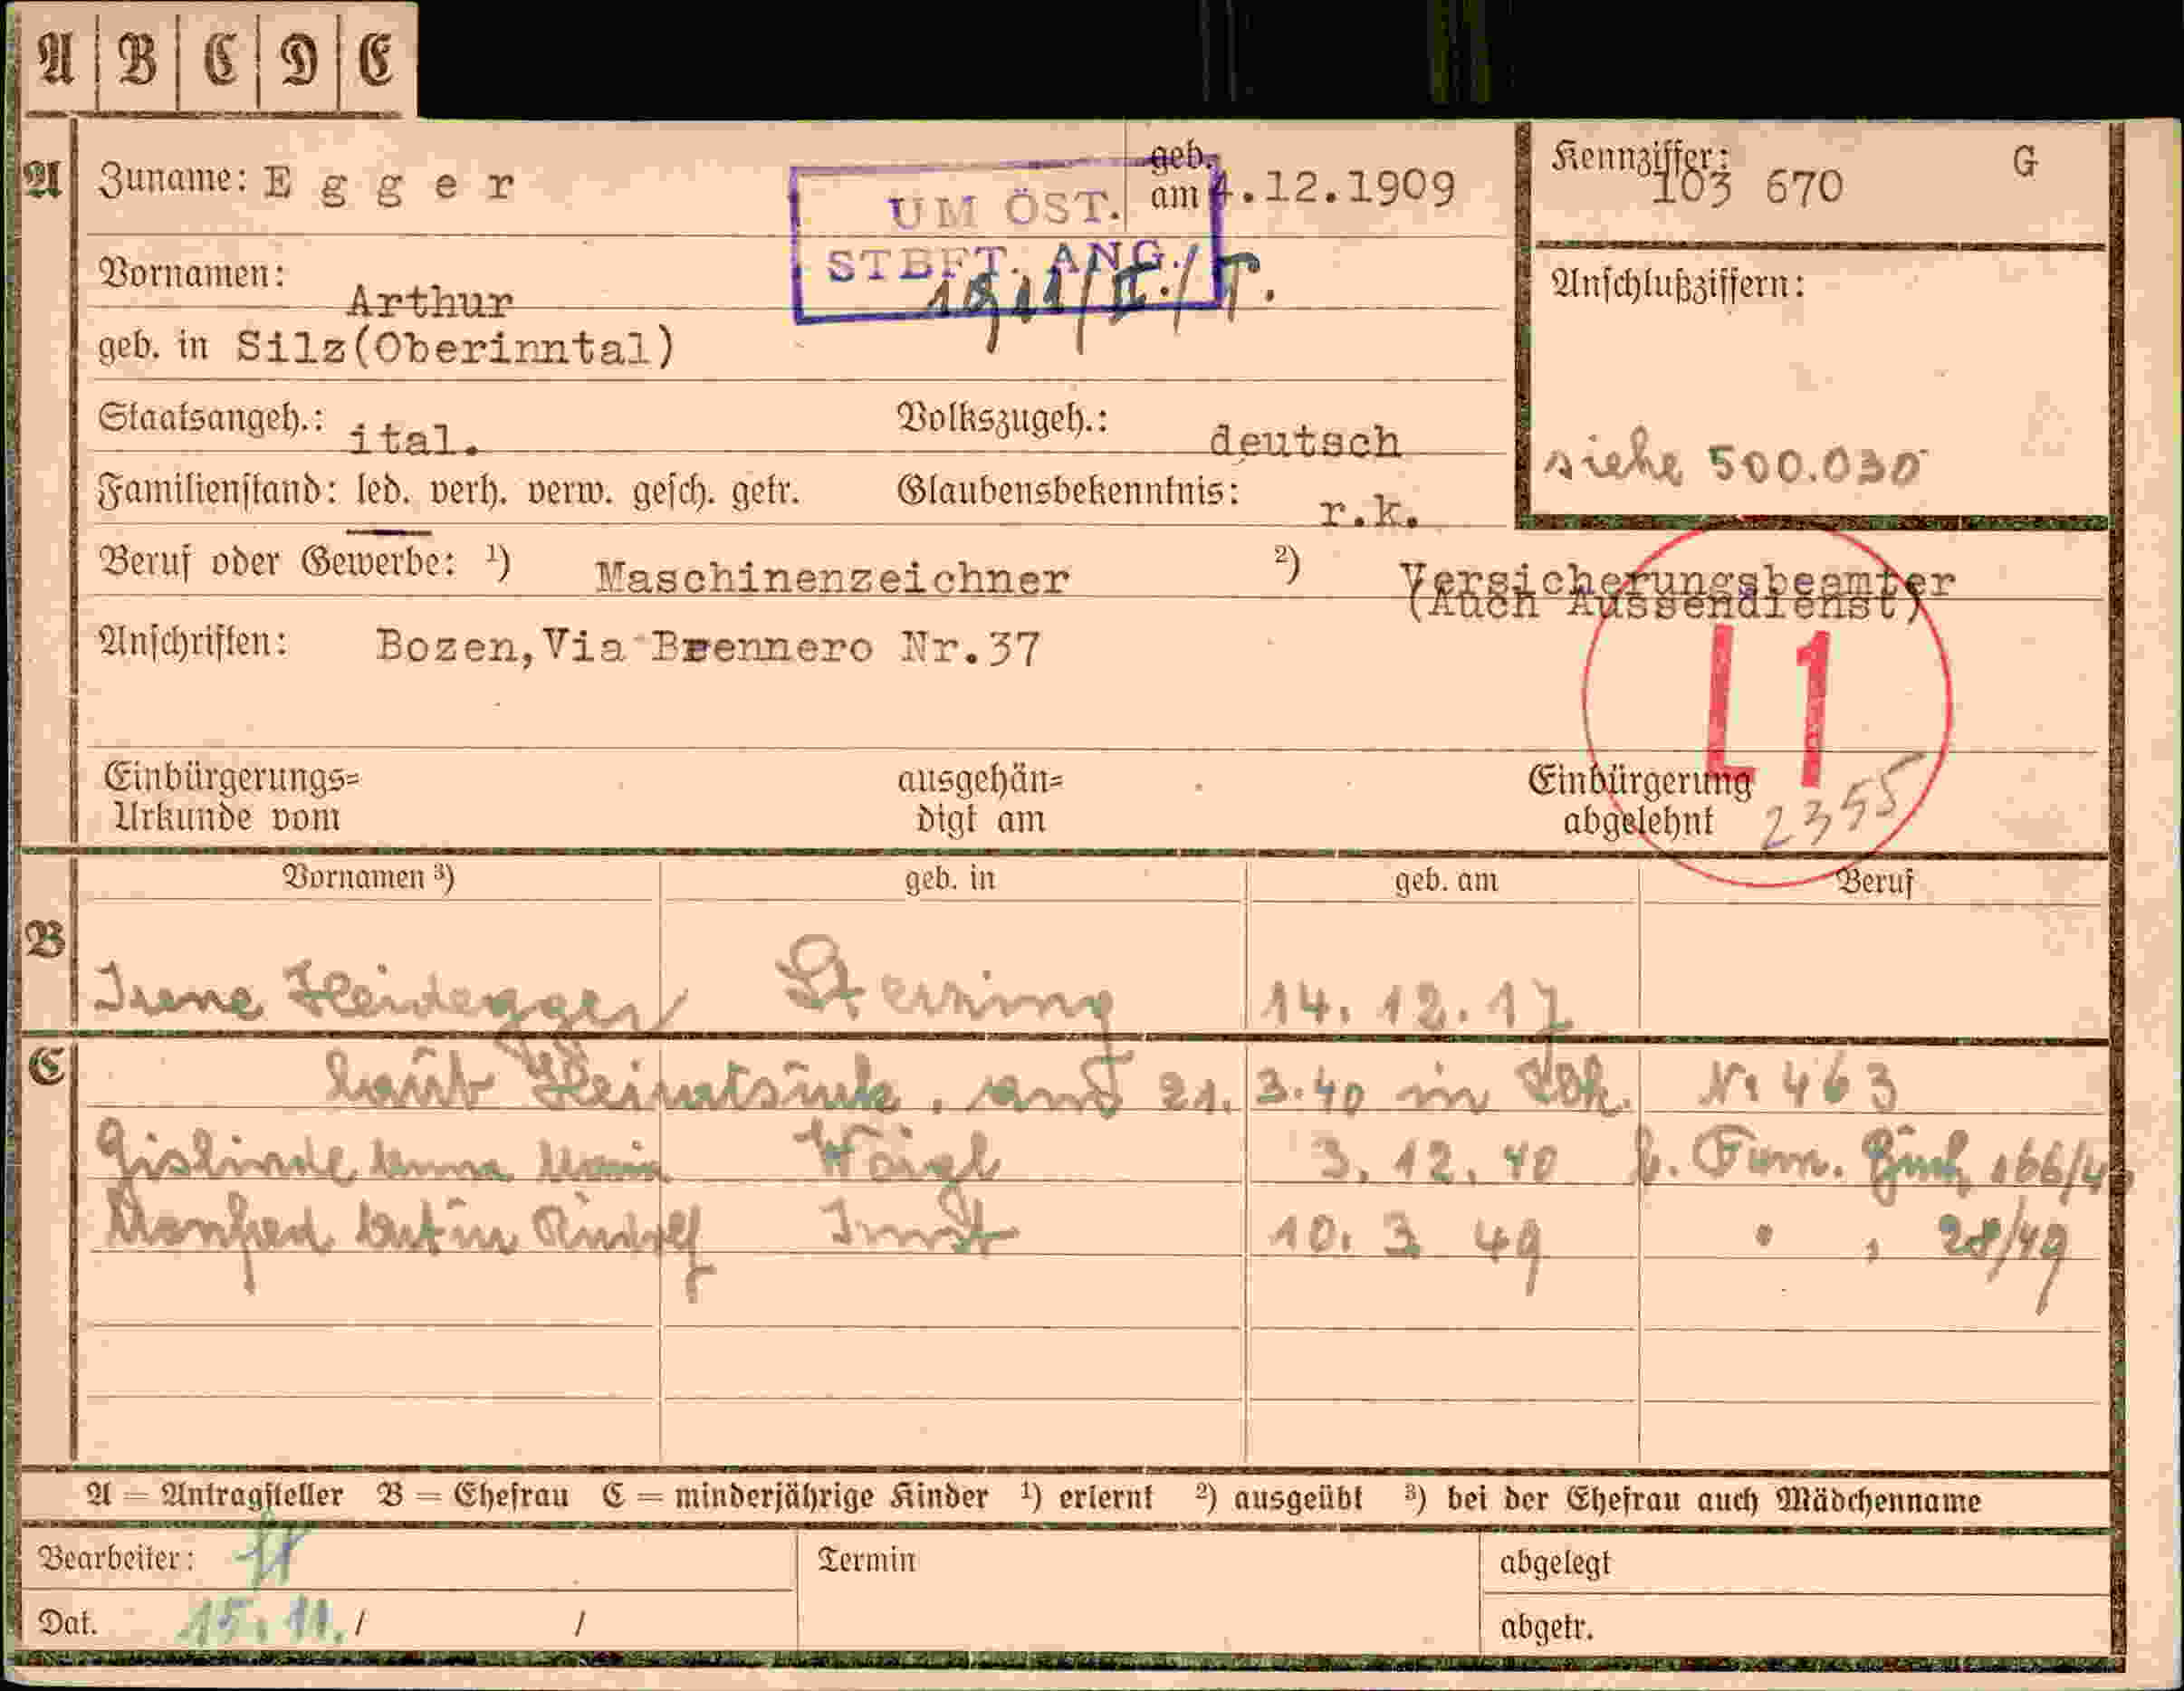 A B C D E
A Zuname: Egger geb. am 4.12.1909 Kennziffer: 103 670 G
UM ÖST.
STBFT. ANG.
Vornamen: Arthur
geb. in Silz(Oberinntal)
Anschlußziffern:
Staatsangeh.: ital. Volkszugeh.: deutsch
siehe 500.030
Familienstand: led. verh. verw. gesch. getr. Glaubensbekenntnis: r.k.
Beruf oder Gewerbe: ¹) Maschinenzeichner ²) Versicherungsbeamter
(Auch Aussendienst)
Anschriften: Bozen,Via Brennero Nr.37
L1
Einbürgerungs= ausgehän= Einbürgerung
Urkunde vom digt am abgelehnt 2355
Vornamen ³) geb. in geb. am Beruf
B Irene Heidegger Sterzing 14. 12. 17
C laut 21. 3.40 in No 463
Gislinde Anna Maria 3. 12. 40 166/4
Manfred Rudolf Imst 10. 3 49 28/49
A = Antragsteller B = Ehefrau C = minderjährige Kinder ¹) erlernt ²) ausgeübt ³) bei der Ehefrau auch Mädchenname
Bearbeiter: Termin abgelegt
Dat. 15. 11. / / abgetr.